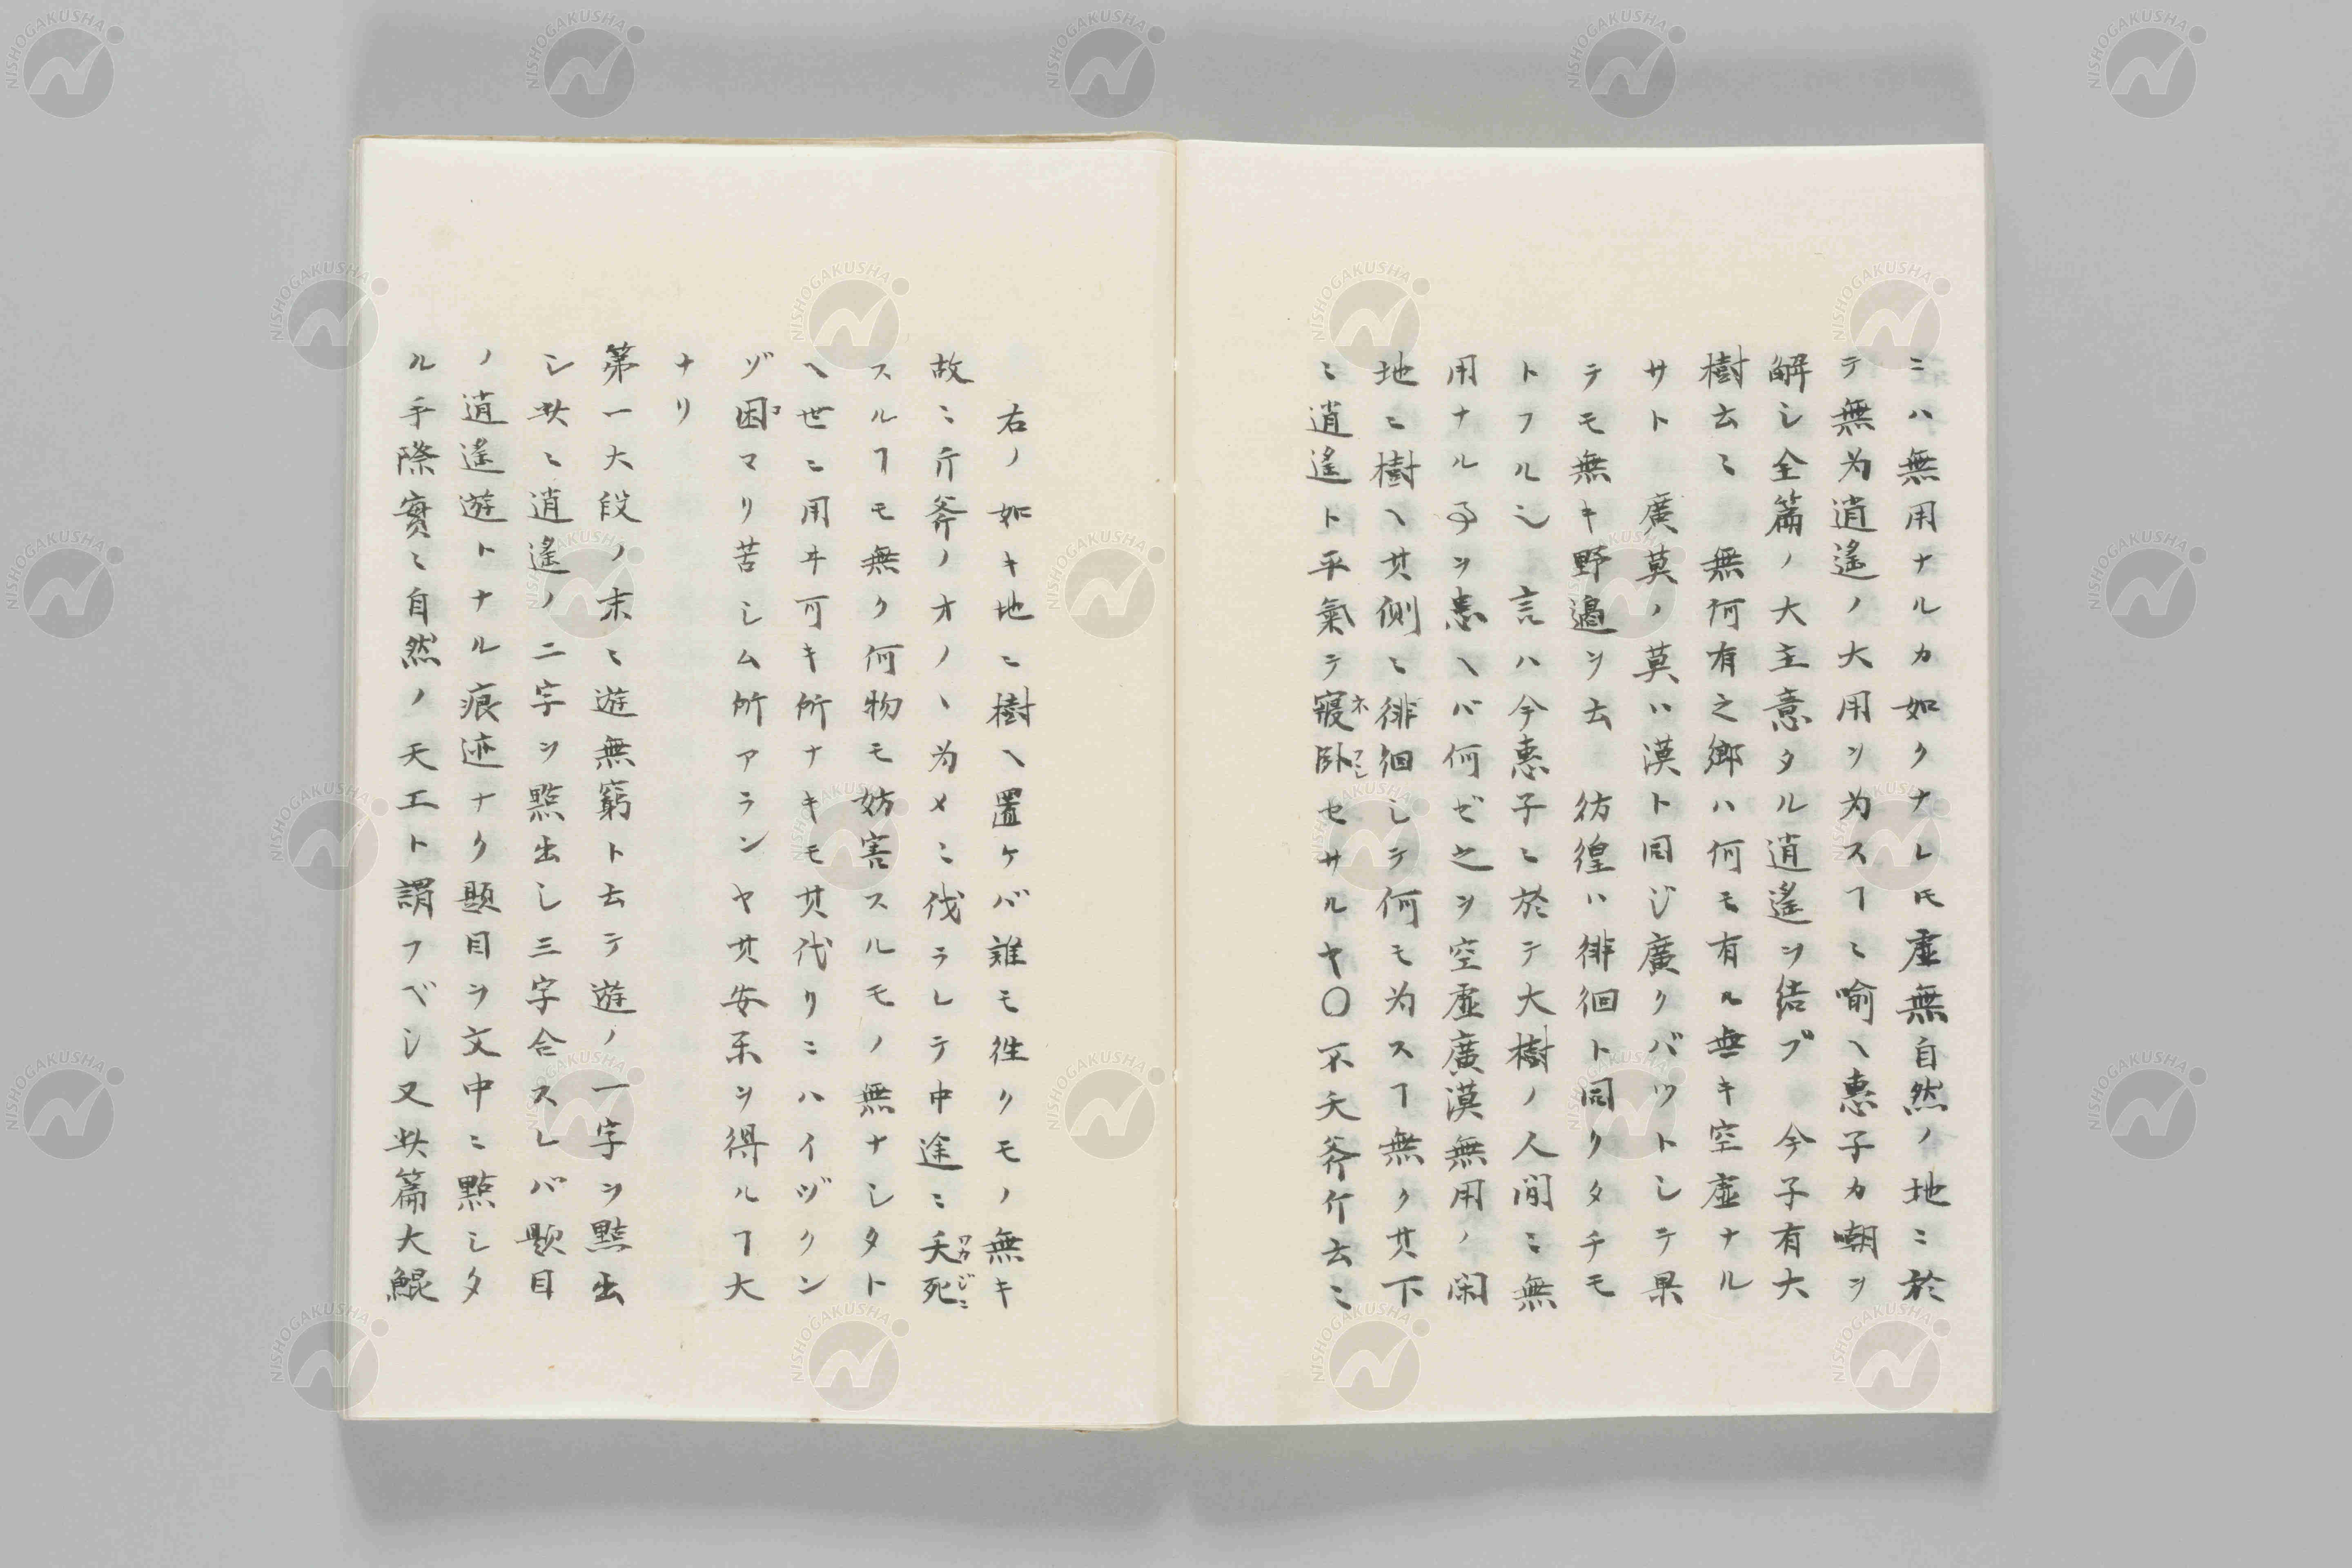 ニハ無用ナルカ如クナレ𪜈虚無自然ノ地ニ於
テ無為逍遙ノ大用ヲ為スヿニ喻ヘ惠子カ嘲ヲ
解シ全篇ノ大主意タル逍遙ヲ結ブ　今子有大
樹云ミ　無何有之鄉ハ何モ有ル無キ空虚ナル
サト　廣莫ノ莫ハ漠ト同ジ廣クバツトシテ果
テモ無キ野邉ヲ云　彷徨ハ徘徊ト同クタチモ
トフル也　言ハ今惠子ニ於テ大樹ノ人間ニ無
用ナルヿヲ患ヘバ何ゼ之ヲ空虚廣漠無用ノ閑
地ニ樹ヘ其側ニ徘徊シテ何モ為スヿ無ク其下
ニ逍遙ト平氣テ寢臥セサルヤ〇不夭斧斤云ミ
右ノ如キ地ニ樹ヘ置ケバ誰モ徃クモノ無キ
故ニ斤斧ノオノヽ為メニ伐ラレテ中途ニ夭死
スルヿモ無ク何物モ妨害スルモノ無ナシタト
ヘ世ニ用ヰ可キ所ナキモ其代リニハイヅクン
ゾ困マリ苦シム所アランヤ其安樂ヲ得ルヿ大
ナリ
第一大段ノ末ニ遊無窮ト云テ遊ノ一字ヲ㸃出
シ此ニ逍遙ノ二字ヲ㸃出シ三字合スレバ題目
ノ逍遙遊トナル痕迹ナク題目ヲ文中ニ㸃シタ
ル手際實ニ自然ノ天工ト謂フベシ又此篇大鯤
NISHOGAKUSHA